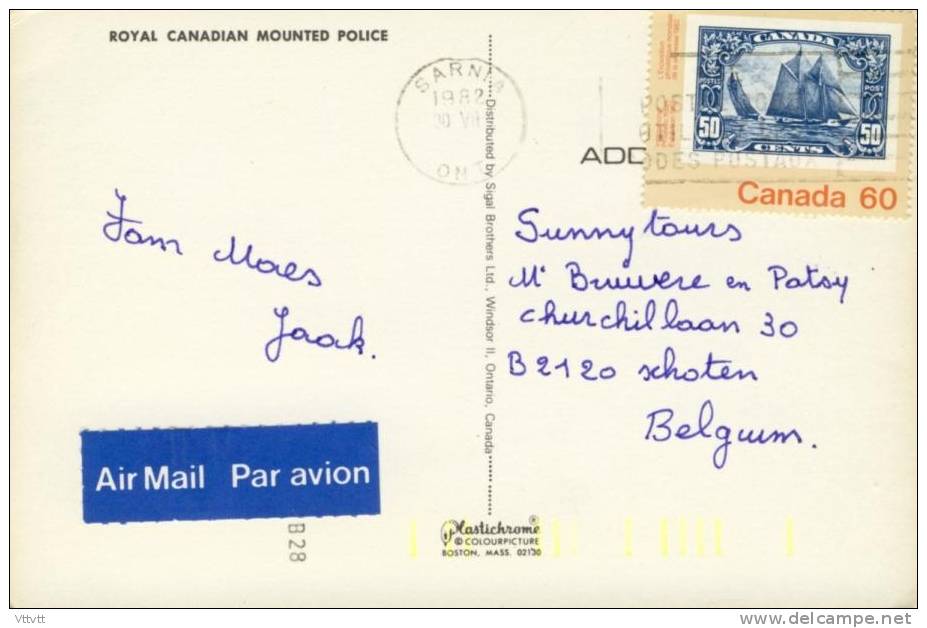 ROYAL CANADIAN MOUNTED POLICE
SARNIA
1982
ONT
CANADA
POSTES POST
50 50
CENTS
Canada 60
POST
ODES POSTAUX
ADD
Fam Maes
Jaak.
Sunnytours
Mr Bruwere en Patsy
Churchillaan 30
B2120 schoten
Belgium.
Distributed by Sigal Brothers Ltd., Windsor II, Ontario, Canada
Air Mail Par avion
B28
Plastichrome®
© COLOURPICTURE
BOSTON, MASS. 02130
Vttvtt
delcampe.net